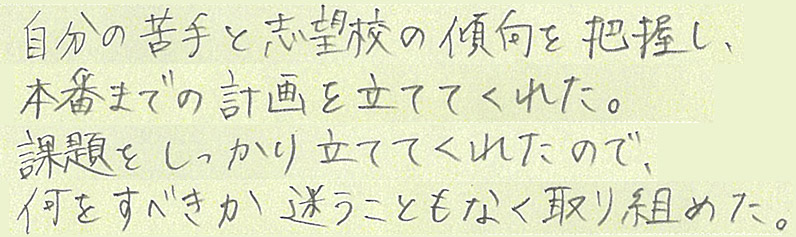 自分の苦手と志望校の傾向を把握し、
本番までの計画を立ててくれた。
課題をしっかり立ててくれたので、
何をすべきか迷うこともなく取り組めた。